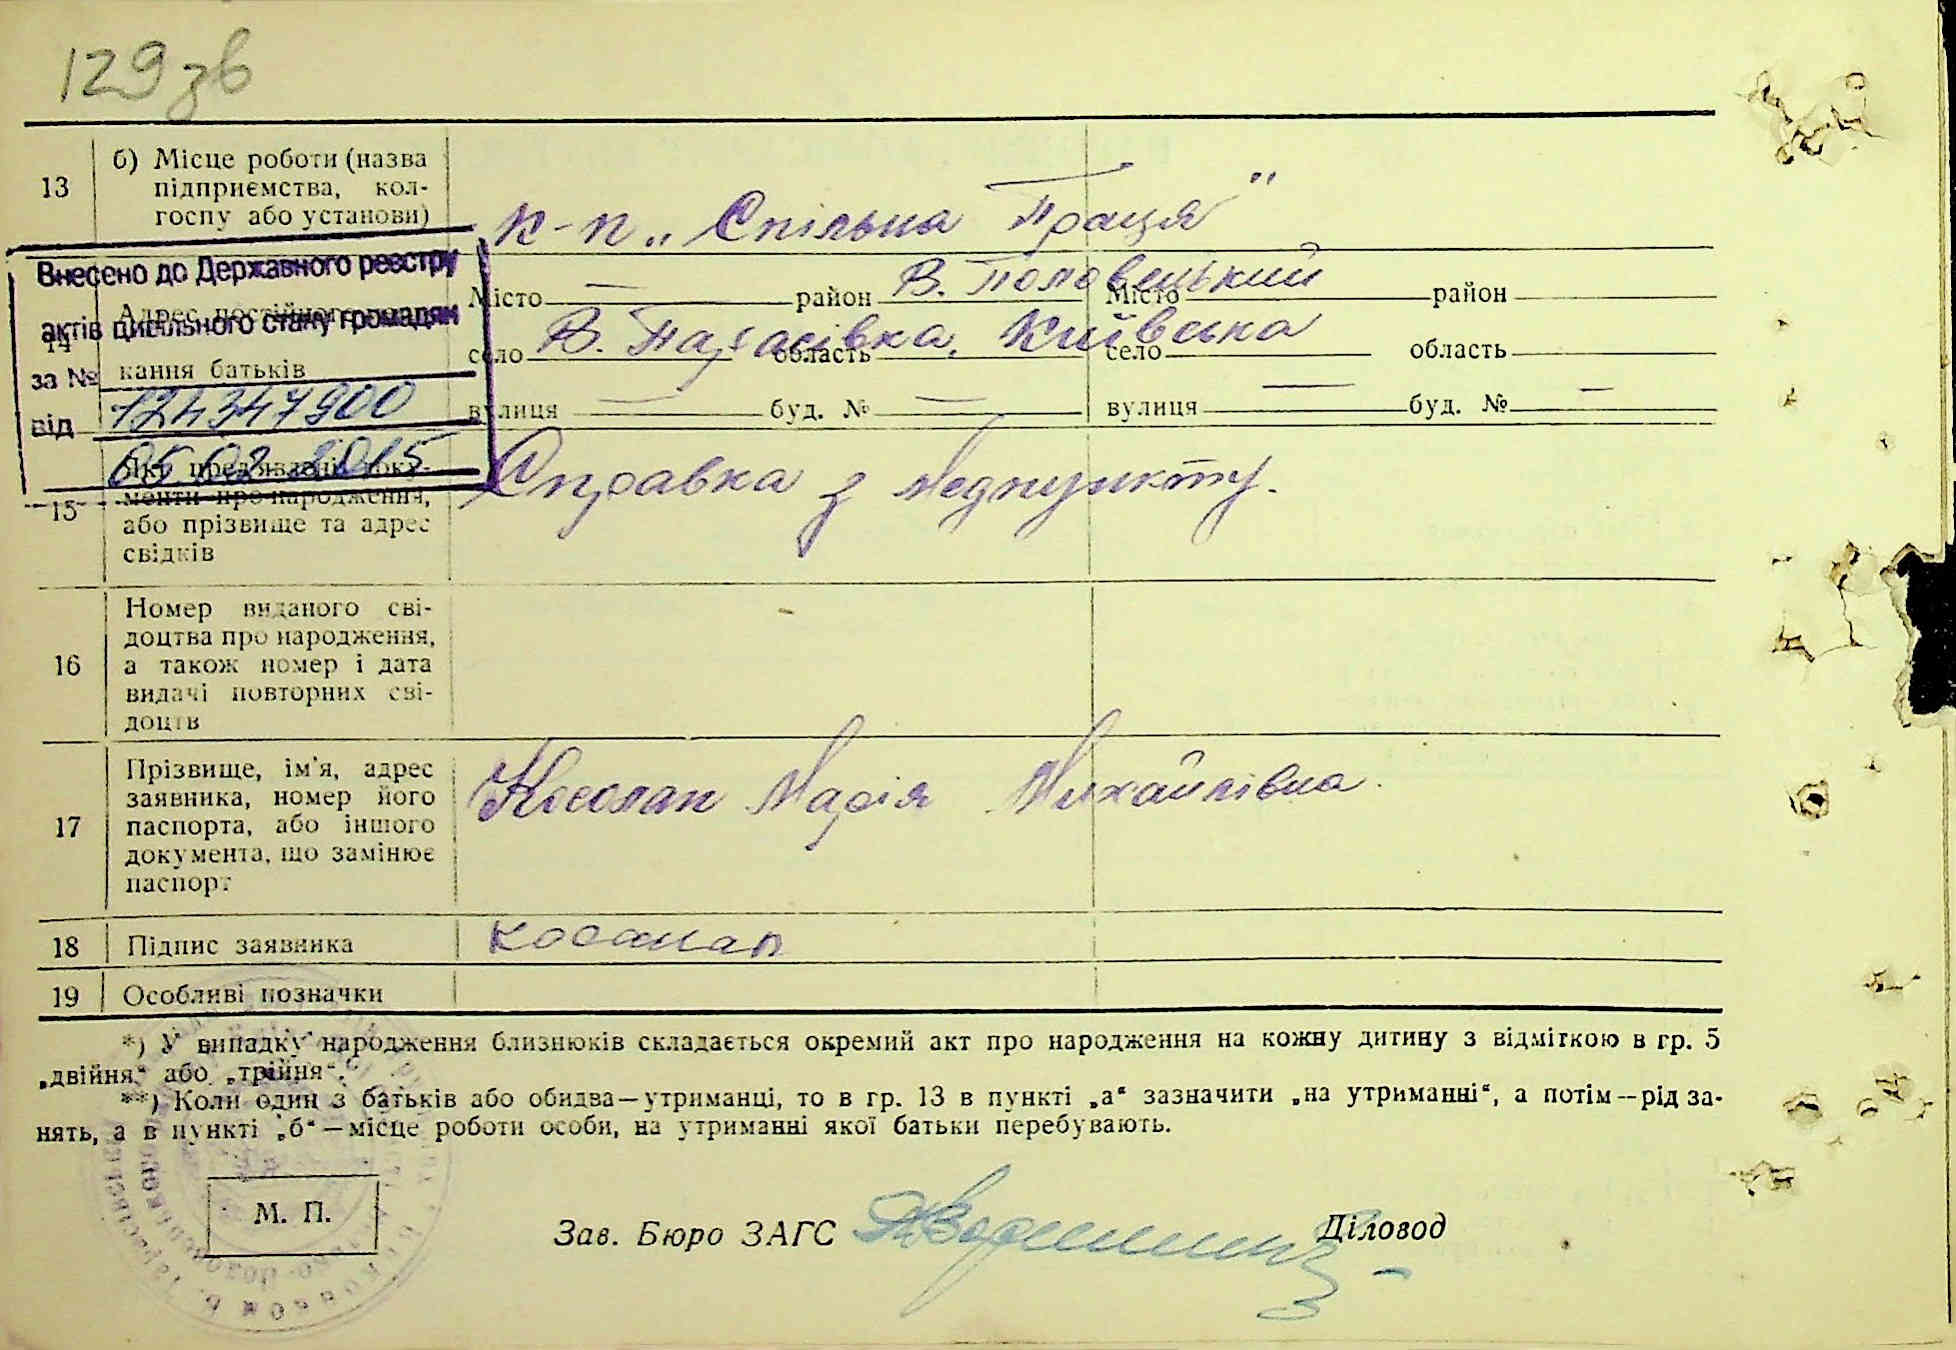 129 зв
13
б) Місце роботи (назва
підприємства, кол-
госпу або установи)
к-п „Спільна Праця"
Внесено до Державного реєстру
актів цивільного стану громадян
за №
124347900
від
05.02.2015
14
Адрес постійного
кання батьків
Місто — район В. Половецький
село В. Тарасівка область Київська
вулиця — буд. № —
Місто район
село область
вулиця — буд. № —
15
Які пред'явлені доку-
менти про народження,
або прізвище та адрес
свідків
Справка з медпункту.
16
Номер виданого сві-
доцтва про народження,
а також номер і дата
видачі повторних сві-
доцтв
17
Прізвище, ім'я, адрес
заявника, номер його
паспорта, або іншого
документа, що замінює
паспорт
Косолап Марія Михайлівна
18
Підпис заявника
косолап
19
Особливі позначки
*) У випадку народження близнюків складається окремий акт про народження на кожну дитину з відміткою в гр. 5
„двійня“ або „трійня“.
**) Коли один з батьків або обидва—утриманці, то в гр. 13 в пункті „а“ зазначити „на утриманні“, а потім—рід за-
нять, а в пункті „б“—місце роботи особи, на утриманні якої батьки перебувають.
М. П.
Зав. Бюро ЗАГС
Діловод